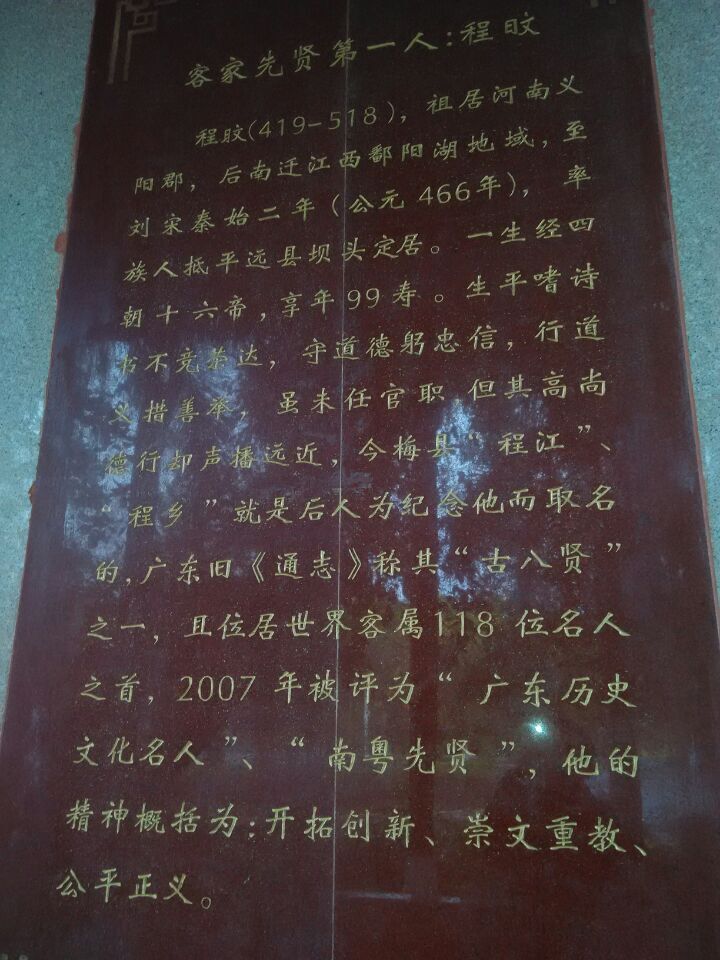 客家先贤第一人:程旼
程旼(419-518),祖居河南义
阳郡,后南迁江西鄱阳湖地域,至
刘宋秦始二年(公元466年),率
族人抵平远县坝头定居。一生经四
朝十六帝,享年99寿。生平嗜诗
书不竞荣达,守道德躬忠信,行道
义措善举,虽未任官职 但其高尚
德行却声播远近,今梅县“程江”、
“程乡”就是后人为纪念他而取名
的,广东旧《通志》称其“古八贤”
之一,且位居世界客属118位名人
之首,2007年被评为“广东历史
文化名人”、“南粤先贤”,他的
精神概括为:开拓创新、崇文重教、
公平正义。